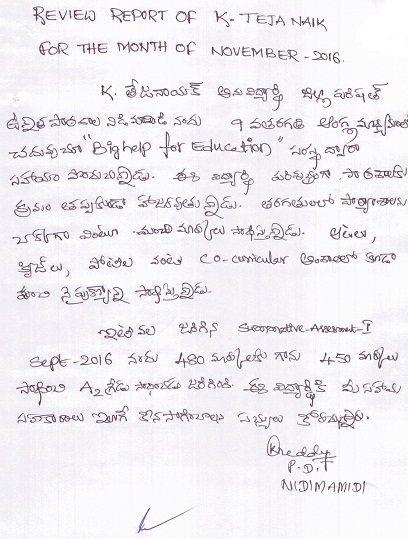 REVIEW REPORT OF K-TEJA NAIK
FOR THE MONTH OF NOVEMBER-2016.
K. తేజనాయక్ అను విద్యార్థి జిల్లా పరిషత్
ఉన్నత పాఠశాల నిడిమామిడి నందు 9 వ తరగతి ఆంగ్ల మాధ్యమంలో
చదువుచూ "Bighelp for Education" సంస్థ ద్వారా
సహాయం పొందుచున్నాడు. ఈ విద్యార్థి పాఠశాలకు
క్రమం తప్పకుండా హాజరవుతున్నాడు. తరగతులలో పాఠ్యాంశాలను
బాగా వింటూ మంచి మార్కులు సాధిస్తున్నాడు. ఆటలు,
క్విజ్ లు, పోటీల వంటి co-curricular అంశాలలో కూడా
మంచి నైపుణ్యాన్ని సాధిస్తున్నాడు.
ఇటీవల జరిగిన Summative-Assesment-I
Sept-2016 నందు 480 మార్కులకు గాను 450 మార్కులు
సాధించి A2 గ్రేడు సాధించడం జరిగింది. ఈ విద్యార్థికి మీ సహాయ
సహకారాలు ఇలాగే కొనసాగించాలని కోరుచున్నాము.
P.D.T
NIDIMAMIDI